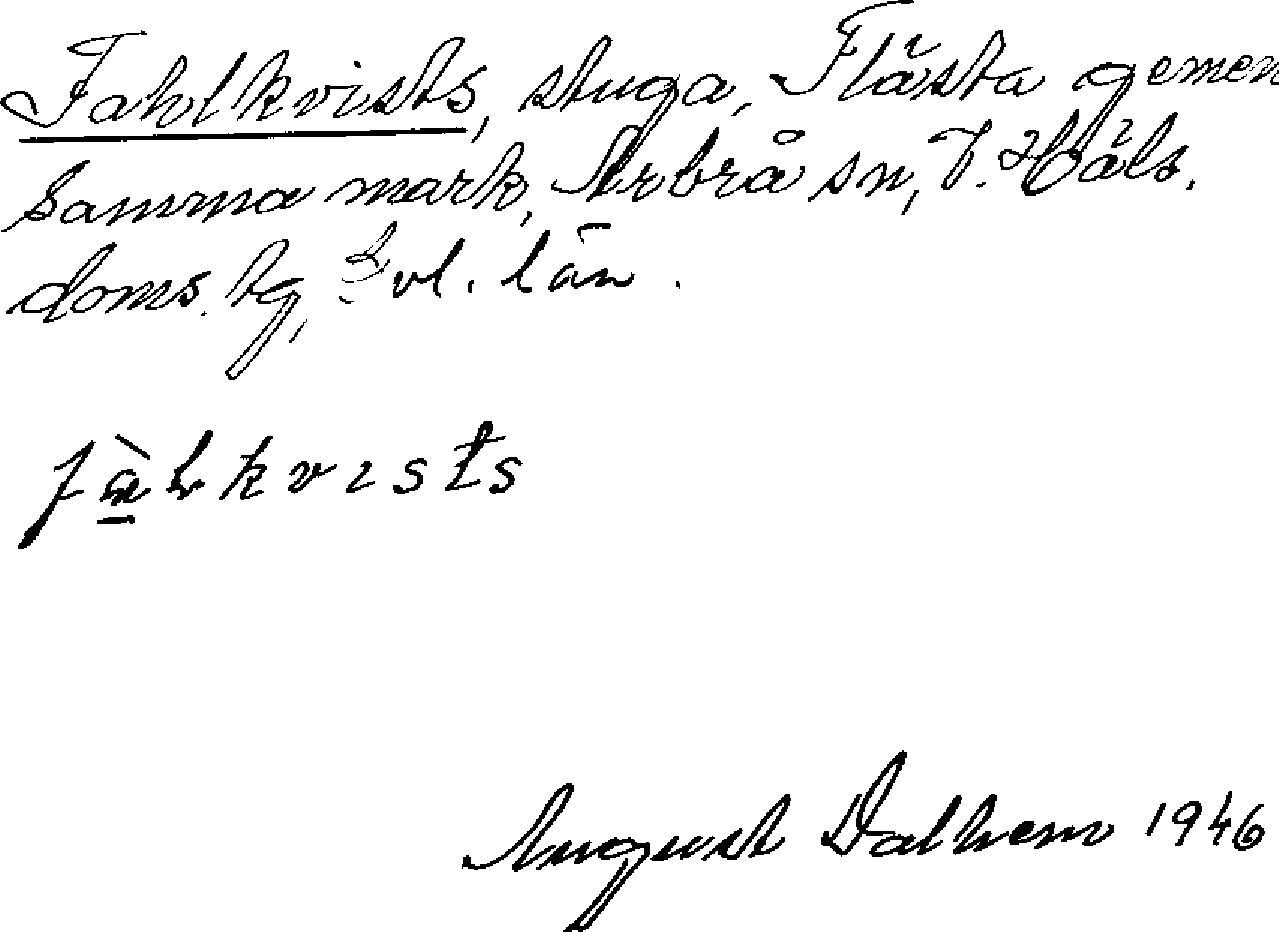 Fahlkvists, stuga, Flästa gemen
samma mark, Arbrå sn, V. Häls.
doms. tg, Gvl. län.
fàlkvists
August Dalhem 1946